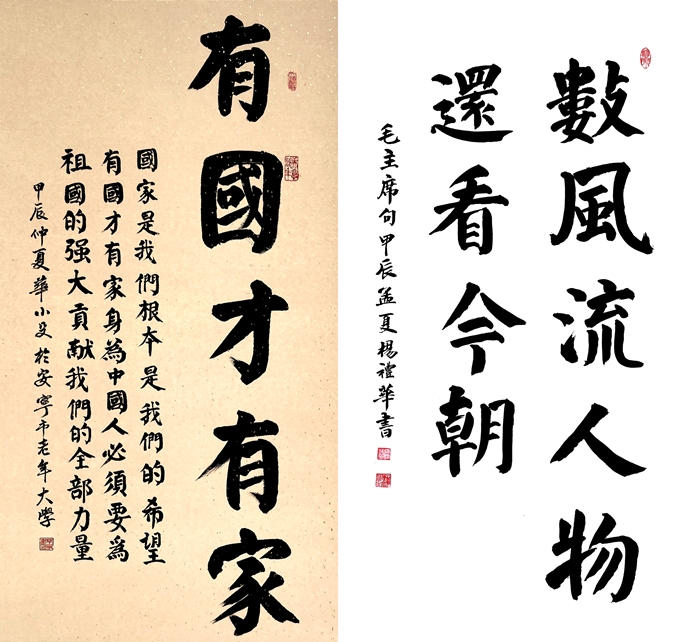 有國才有家
國家是我們根本是我們的希望
有國才有家身為中國人必須要為
祖國的强大貢献我們的全部力量
甲辰仲夏華小旻於安寧市老年大學
數風流人物
還看今朝
毛主席句甲辰孟夏楊禮華書